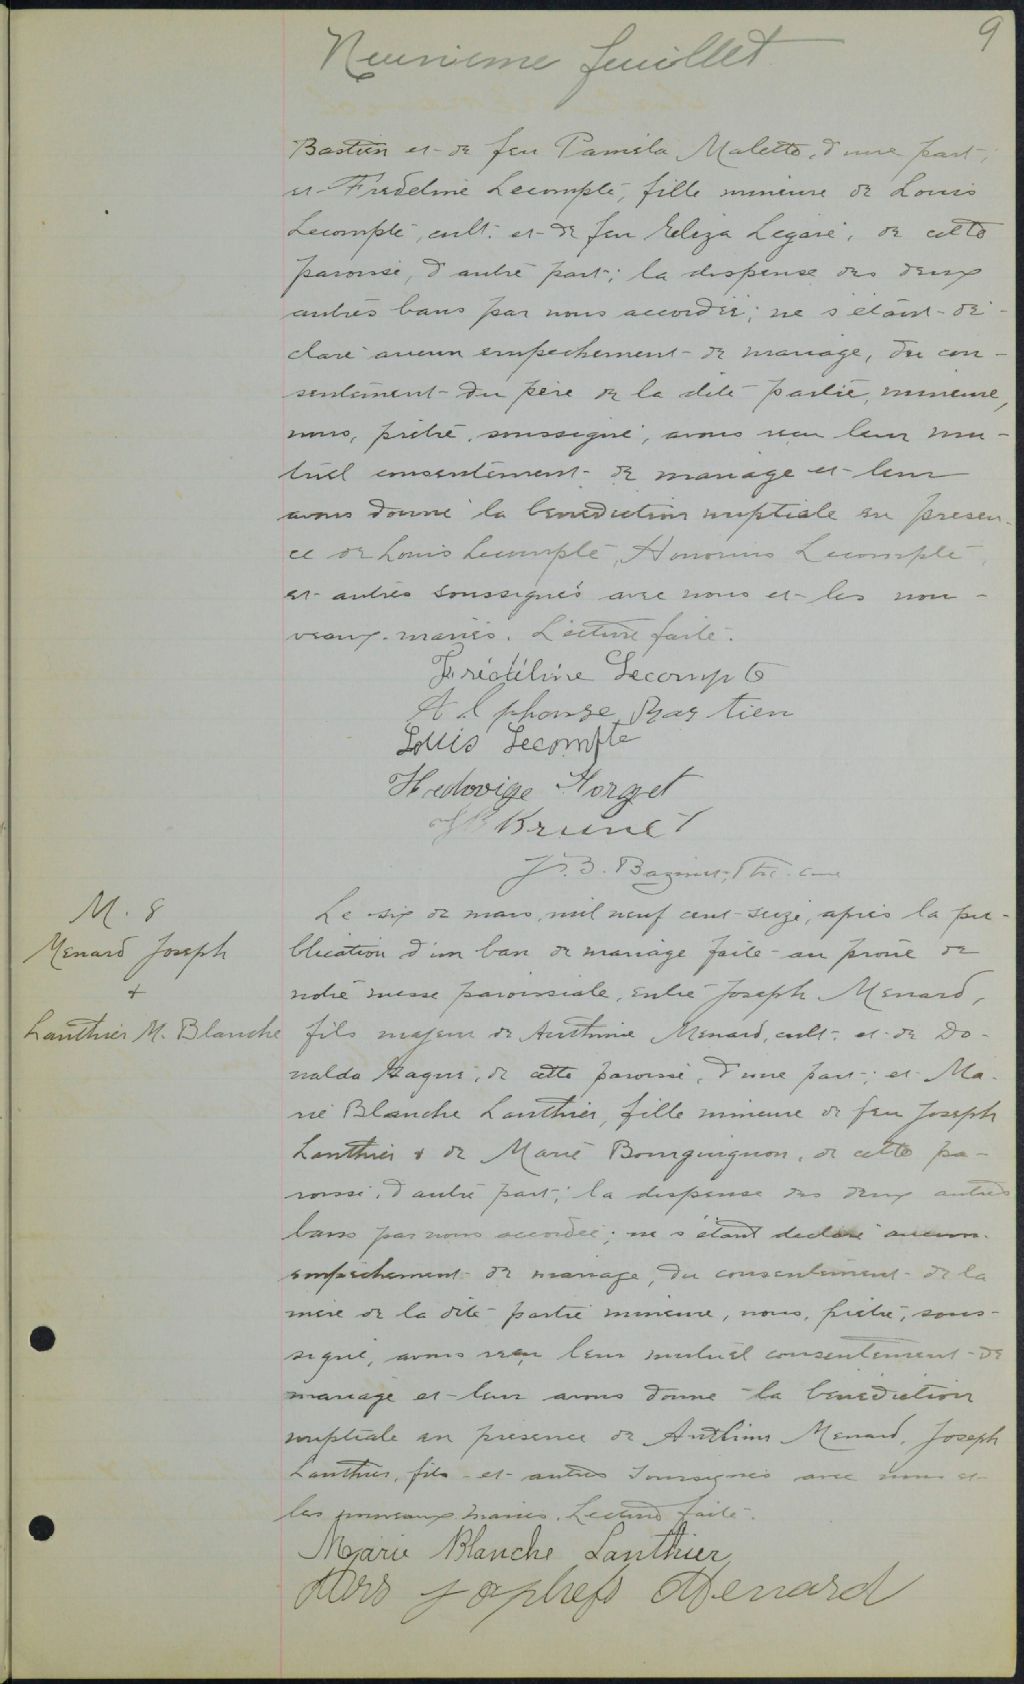 9
Neuvieme feuillet
Bastien et de feu Pamela Malette, d'une part;
et Fredeline Lecompte, fille mineure de Louis
Lecompte, cult. et de feu Eliza Legaré, de cette
paroisse, d'autre part; la dispense des deux
autres bans par nous accordée; ne s'étant dé-
claré aucun empechement de mariage, du con-
sentement du père de la dite partie mineure,
nous, prêtre, soussigné, avons reçu leur mu-
tuel consentement de mariage et leur
avons donné la bénédiction nuptiale en présen-
ce de Louis Lecompte, Honorius Lecompte
et autres soussignés avec nous et les nou-
veaux mariés. Lecture faite.
Frédéline Lecompte
Alphonse Bastien
Louis Lecompte
Hedwige Forget
JB Brunet
Js. B. Bazinet, Ptre. curé
M. 8
Menard Joseph
+
Lanthier M. Blanche
Le six de mars, mil neuf cent seize, après la pu-
blication d'un ban de mariage faite au prône de
notre messe paroissiale, entre Joseph Menard,
fils majeur de Anthime Menard, cult. et de Do-
nalda Gagné, de cette paroisse, d'une part; et Ma-
rie Blanche Lanthier, fille mineure de feu Joseph
Lanthier & de Marie Bourguignon, de cette pa-
roisse, d'autre part; la dispense des deux autres
bans par nous accordée; ne s'étant declaré aucun
empêchement de mariage, du consentement de la
mère de la dite partie mineure, nous, prêtre, sous-
signé, avons reçu leur mutuel consentement de
mariage et leur avons donné la bénédiction
nuptiale en presence de Anthime Menard, Joseph
Lanthier, fils et autres soussignés avec nous et
les nouveaux mariés. Lecture faite.
Marie Blanche Lanthier
Joseph Menard